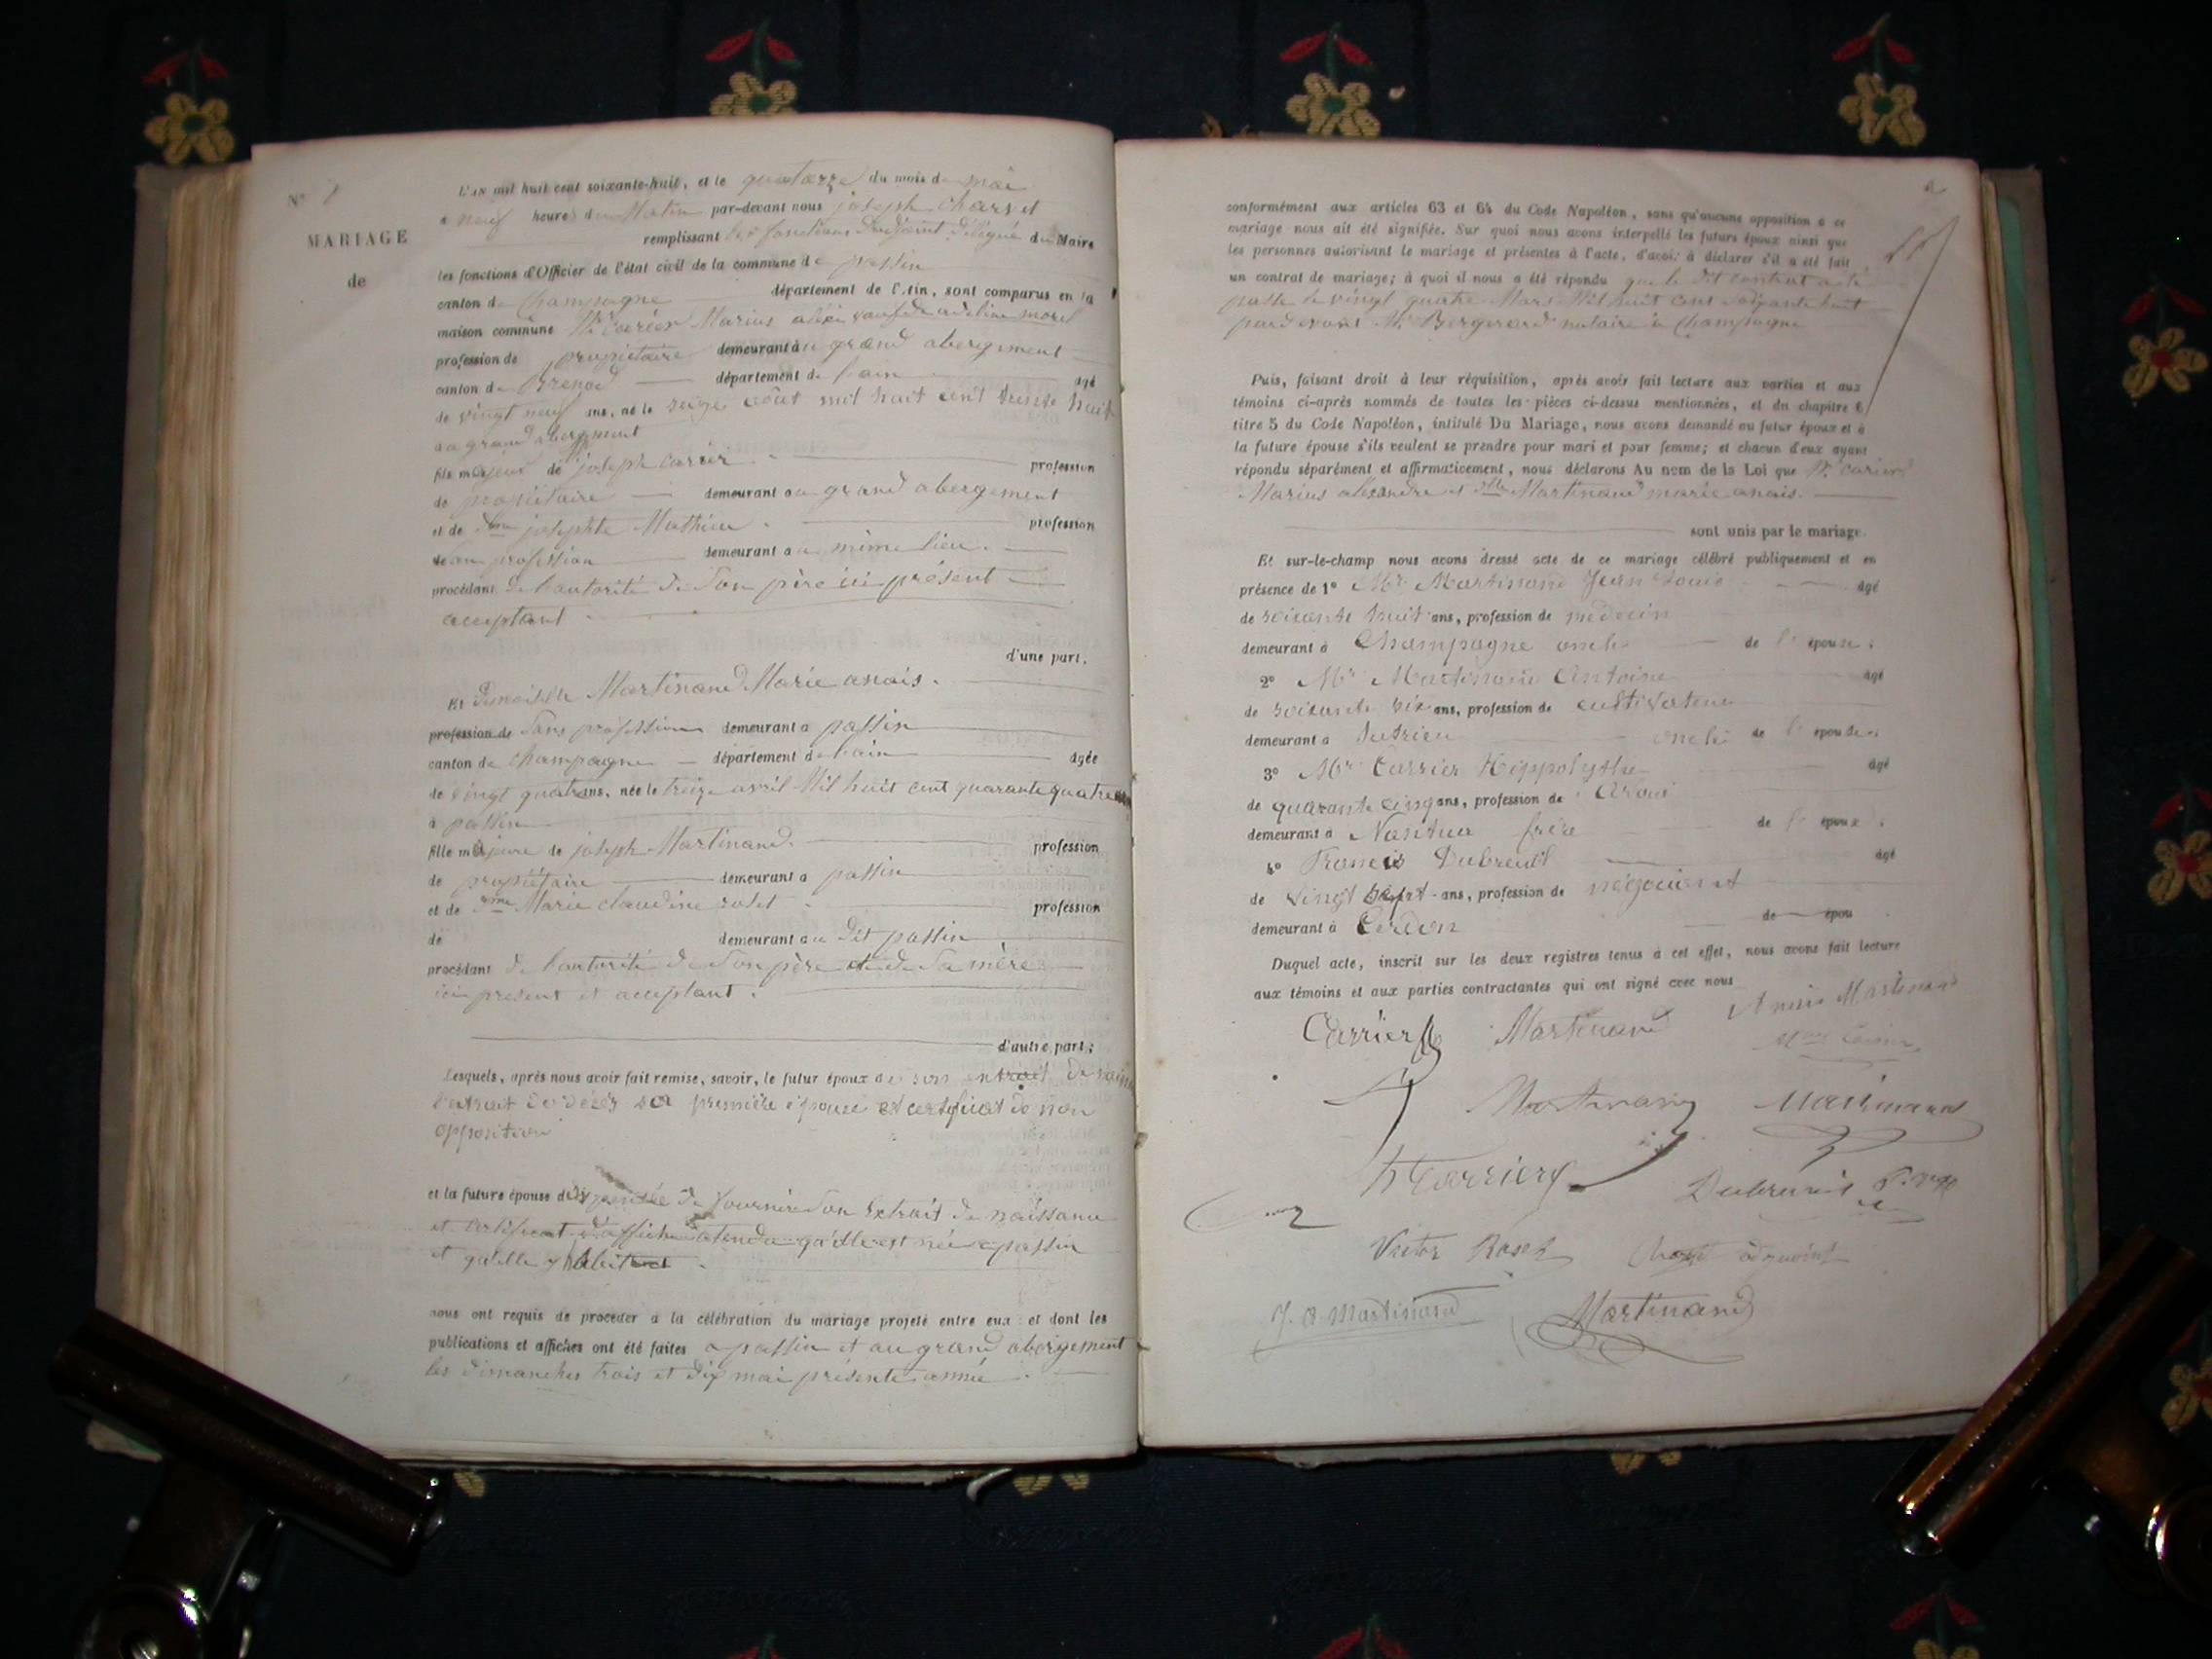 N°
MARIAGE
de
L'AN mil huit cent soixante-huit, et le quatorze du mois de mai
a neuf heures du Matin par-devant nous joseph
remplissant les fonctions d'adjoint délégué du Maire
les fonctions d'Officier de l'état civil de la commune de passin
canton de Champagne département de l'Ain, sont comparus en la
maison commune Mr Carrier Marius veuf de adeline morel
profession de propriétaire demeurant au grand abergement
canton de Brenod département de l'ain agé
de vingt neuf ans, né le seize août mil huit cent trente huit
au grand abergement
fils majeur de joseph carrier profession
de propriétaire demeurant au grand abergement
et de dme josephte Mathieu profession
de sans profession demeurant au même lieu.
procédant de l'autorité de son père ici présent
acceptant
d'une part.
Et demoiselle Martinand Marie anais.
profession de Sans profession demeurant a passin
canton de Champagne département de l'ain agée
de vingt quatre ans, née le treize avril Mil huit cent quarante quatre
à passin
fille majeure de joseph Martinand. profession
de propriétaire demeurant a passin
et de dme Marie claudine rolet profession
de demeurant au dit passin
procédant de l'autorité de son père et de sa mère
ici présent et acceptant.
d'autre part;
Lesquels, après nous avoir fait remise, savoir, le futur époux de son extrait de
l'extrait de décès sa première épouse et certificat de non
opposition
et la future épouse dispensée de fournir son extrait de naissance
et certificat d'affiche atendu qu'elle est née a passin
et qu'elle y habite
nous ont requis de procéder a la célébration du mariage projeté entre eux et dont les
publications et affiches ont été faites a passin et au grand abergement
les dimanches trois et dix mai présente année
conformément aux articles 63 et 64 du Code Napoléon, sans qu'aucune opposition a ce
mariage nous ait été signifiée. Sur quoi nous avons interpellé les futurs époux ainsi que
les personnes autorisant le mariage et présentes à l'acte, d'avoir à déclarer s'il a été fait
un contrat de mariage; à quoi il nous a été répondu que le dit contrat a été
passé le vingt quatre Mars Mil huit cent soixante huit
par devant Me Bergerard notaire à Champagne
Puis, faisant droit à leur réquisition, après avoir fait lecture aux parties et aux
témoins ci-après nommés de toutes les pièces ci-dessus mentionnées, et du chapitre 6
titre 5 du Code Napoléon, intitulé Du Mariage, nous avons demandé au futur époux et à
la future épouse s'ils veulent se prendre pour mari et pour femme; et chacun d'eux ayant
répondu séparément et affirmativement, nous déclarons Au nom de la Loi que Mr carrier
Marius alexandre et dlle Martinand marie anais.
sont unis par le mariage
Et sur-le-champ nous avons dressé acte de ce mariage célébré publiquement et en
présence de 1° Mr Martinand Jean Louis âgé
de soixante huit ans, profession de médecin
demeurant à Champagne oncle de l' épouse;
2° Mr Martinand Antoine âgé
de soixante six ans, profession de cultivateur
demeurant à oncle de l' épouse;
3° Mr Carrier Hippolythe âgé
de quarante cinq ans, profession de Avoué
demeurant à Nantua frère de l' époux;
4° Francis Dubreuil âgé
de vingt sept ans, profession de négociant
demeurant à Cerdon de épou
Duquel acte, inscrit sur les deux registres tenus à cet effet, nous avons fait lecture
aux témoins et aux parties contractantes qui ont signé avec nous
Carrier Martinand Anais Martinand
Martinand Martinand
h Carrier Dubreuil
Victor Adjoint
J. A. Martinand Martinand